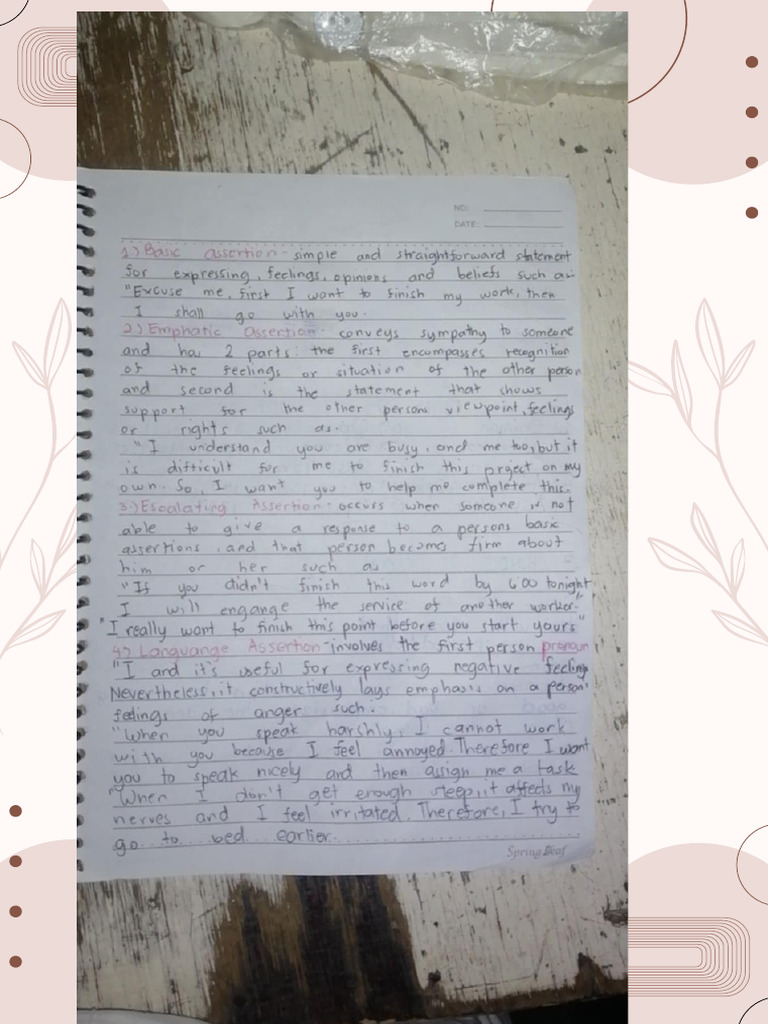 NO:
DATE:
1) Basic assertion - simple and straightforward statement
for expressing, feelings, opinions and beliefs such as:
"Excuse me, first I want to finish my work, then
I shall go with you.
2) Emphatic Assertion - conveys sympathy to someone
and has 2 parts: the first encompasses recognition
of the feelings or situation of the other person
and second is the statement that shows
support for the other persons viewpoint, feelings
or rights such as.
"I understand you are busy, and me too, but it
is difficult for me to finish this project on my
own. So, I want you to help me complete this.
3.) Escalating Assertion - occurs when someone is not
able to give a response to a persons basic
assertions, and that person becomes firm about
him or her such as
"If you didn't finish this word by 6:00 tonight
I will engange the service of another worker."
"I really want to finish this point before you start yours"
4) Languange Assertion - involves the first person pronoun
"I and it's useful for expressing negative feeling
Nevertheless, it constructively lays emphasis on a person'
feelings of anger such.
"When you speak harshly, I cannot work
with you because I feel annoyed. Therefore I want
you to speak nicely and then assign me a task
"When I don't get enough sleep, it affects my
nerves and I feel irritated. Therefore, I try to
go to bed earlier.
Spring Leaf